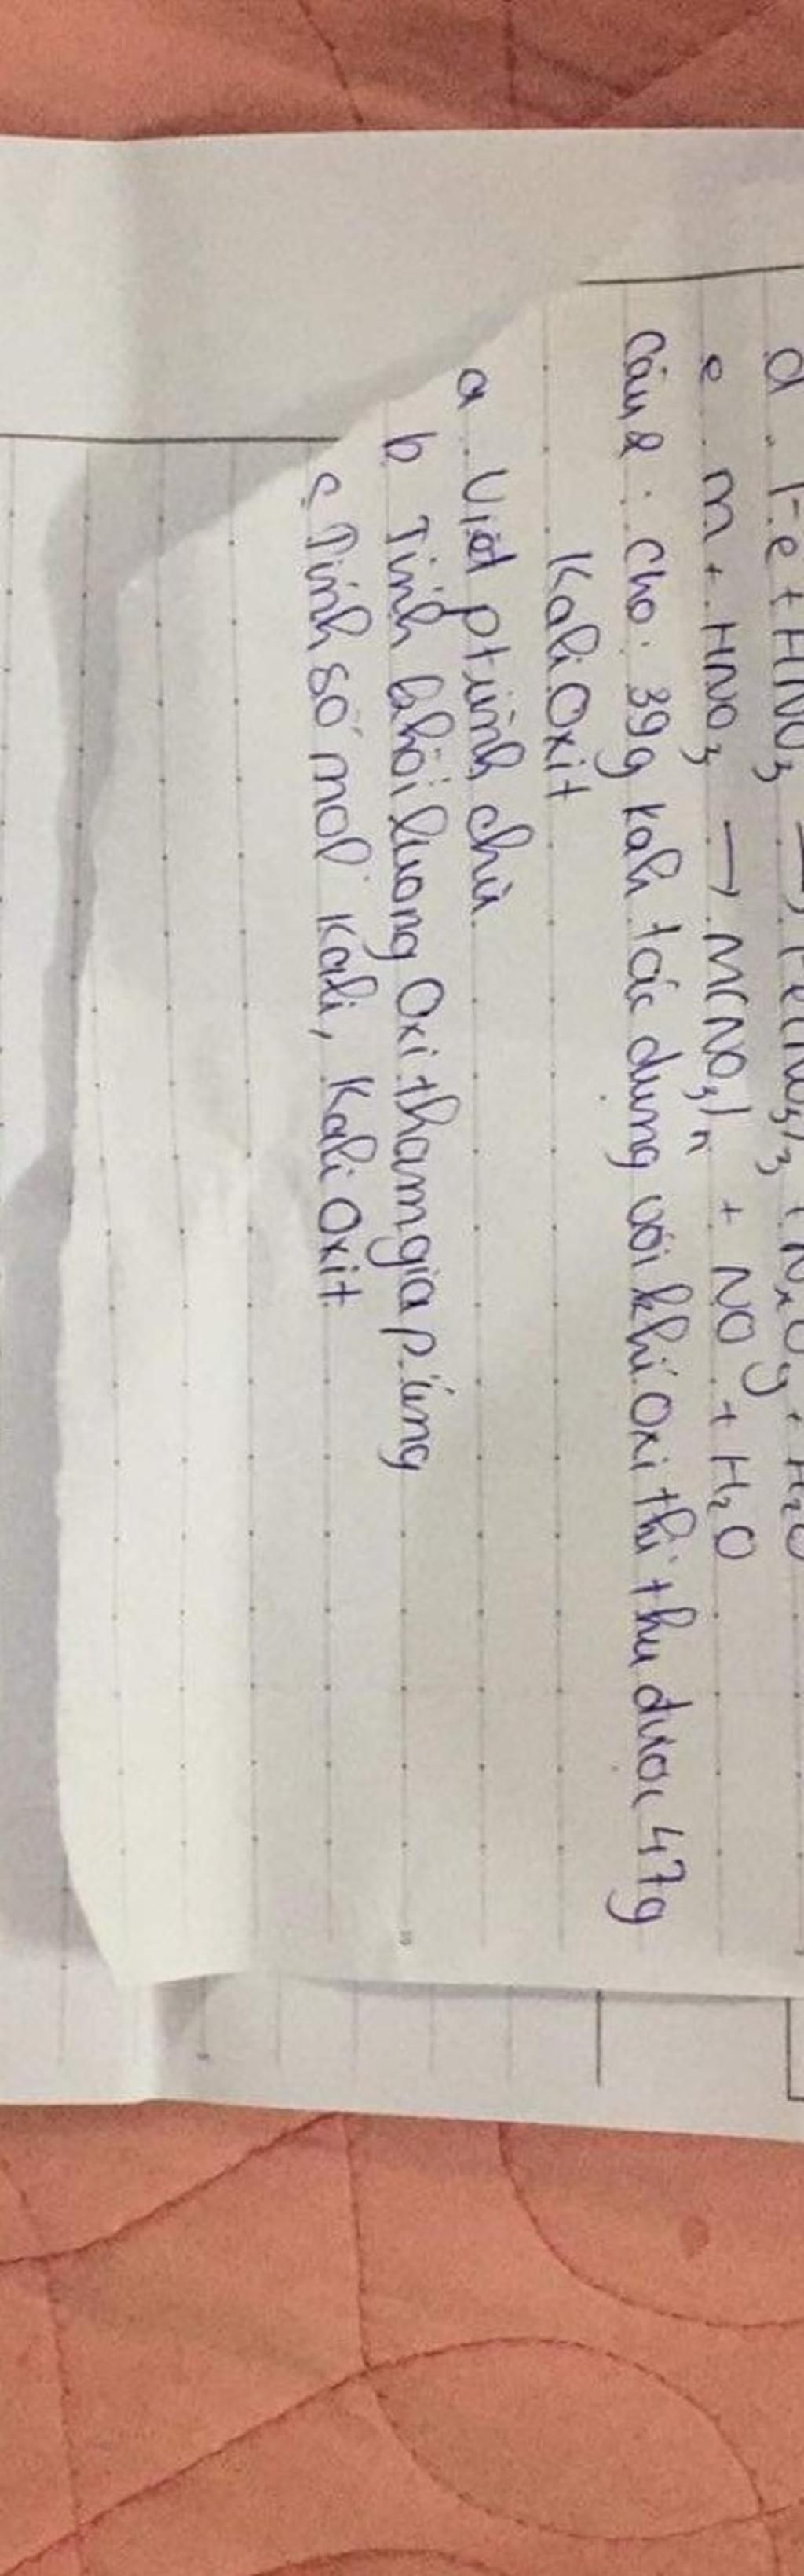 d. Fe + HNO3 → Fe(NO3)3 + NxOy + H2O
e. M + HNO3 → M(NO3)n + NO + H2O
Câu 2: Cho 39g kali tác dụng với khí Oxi thì thu được 47g
Kali Oxit
a. Viết ptrình chữ
b Tính khối lượng Oxi tham gia p.ứng
c Tính số mol Kali, Kali Oxit